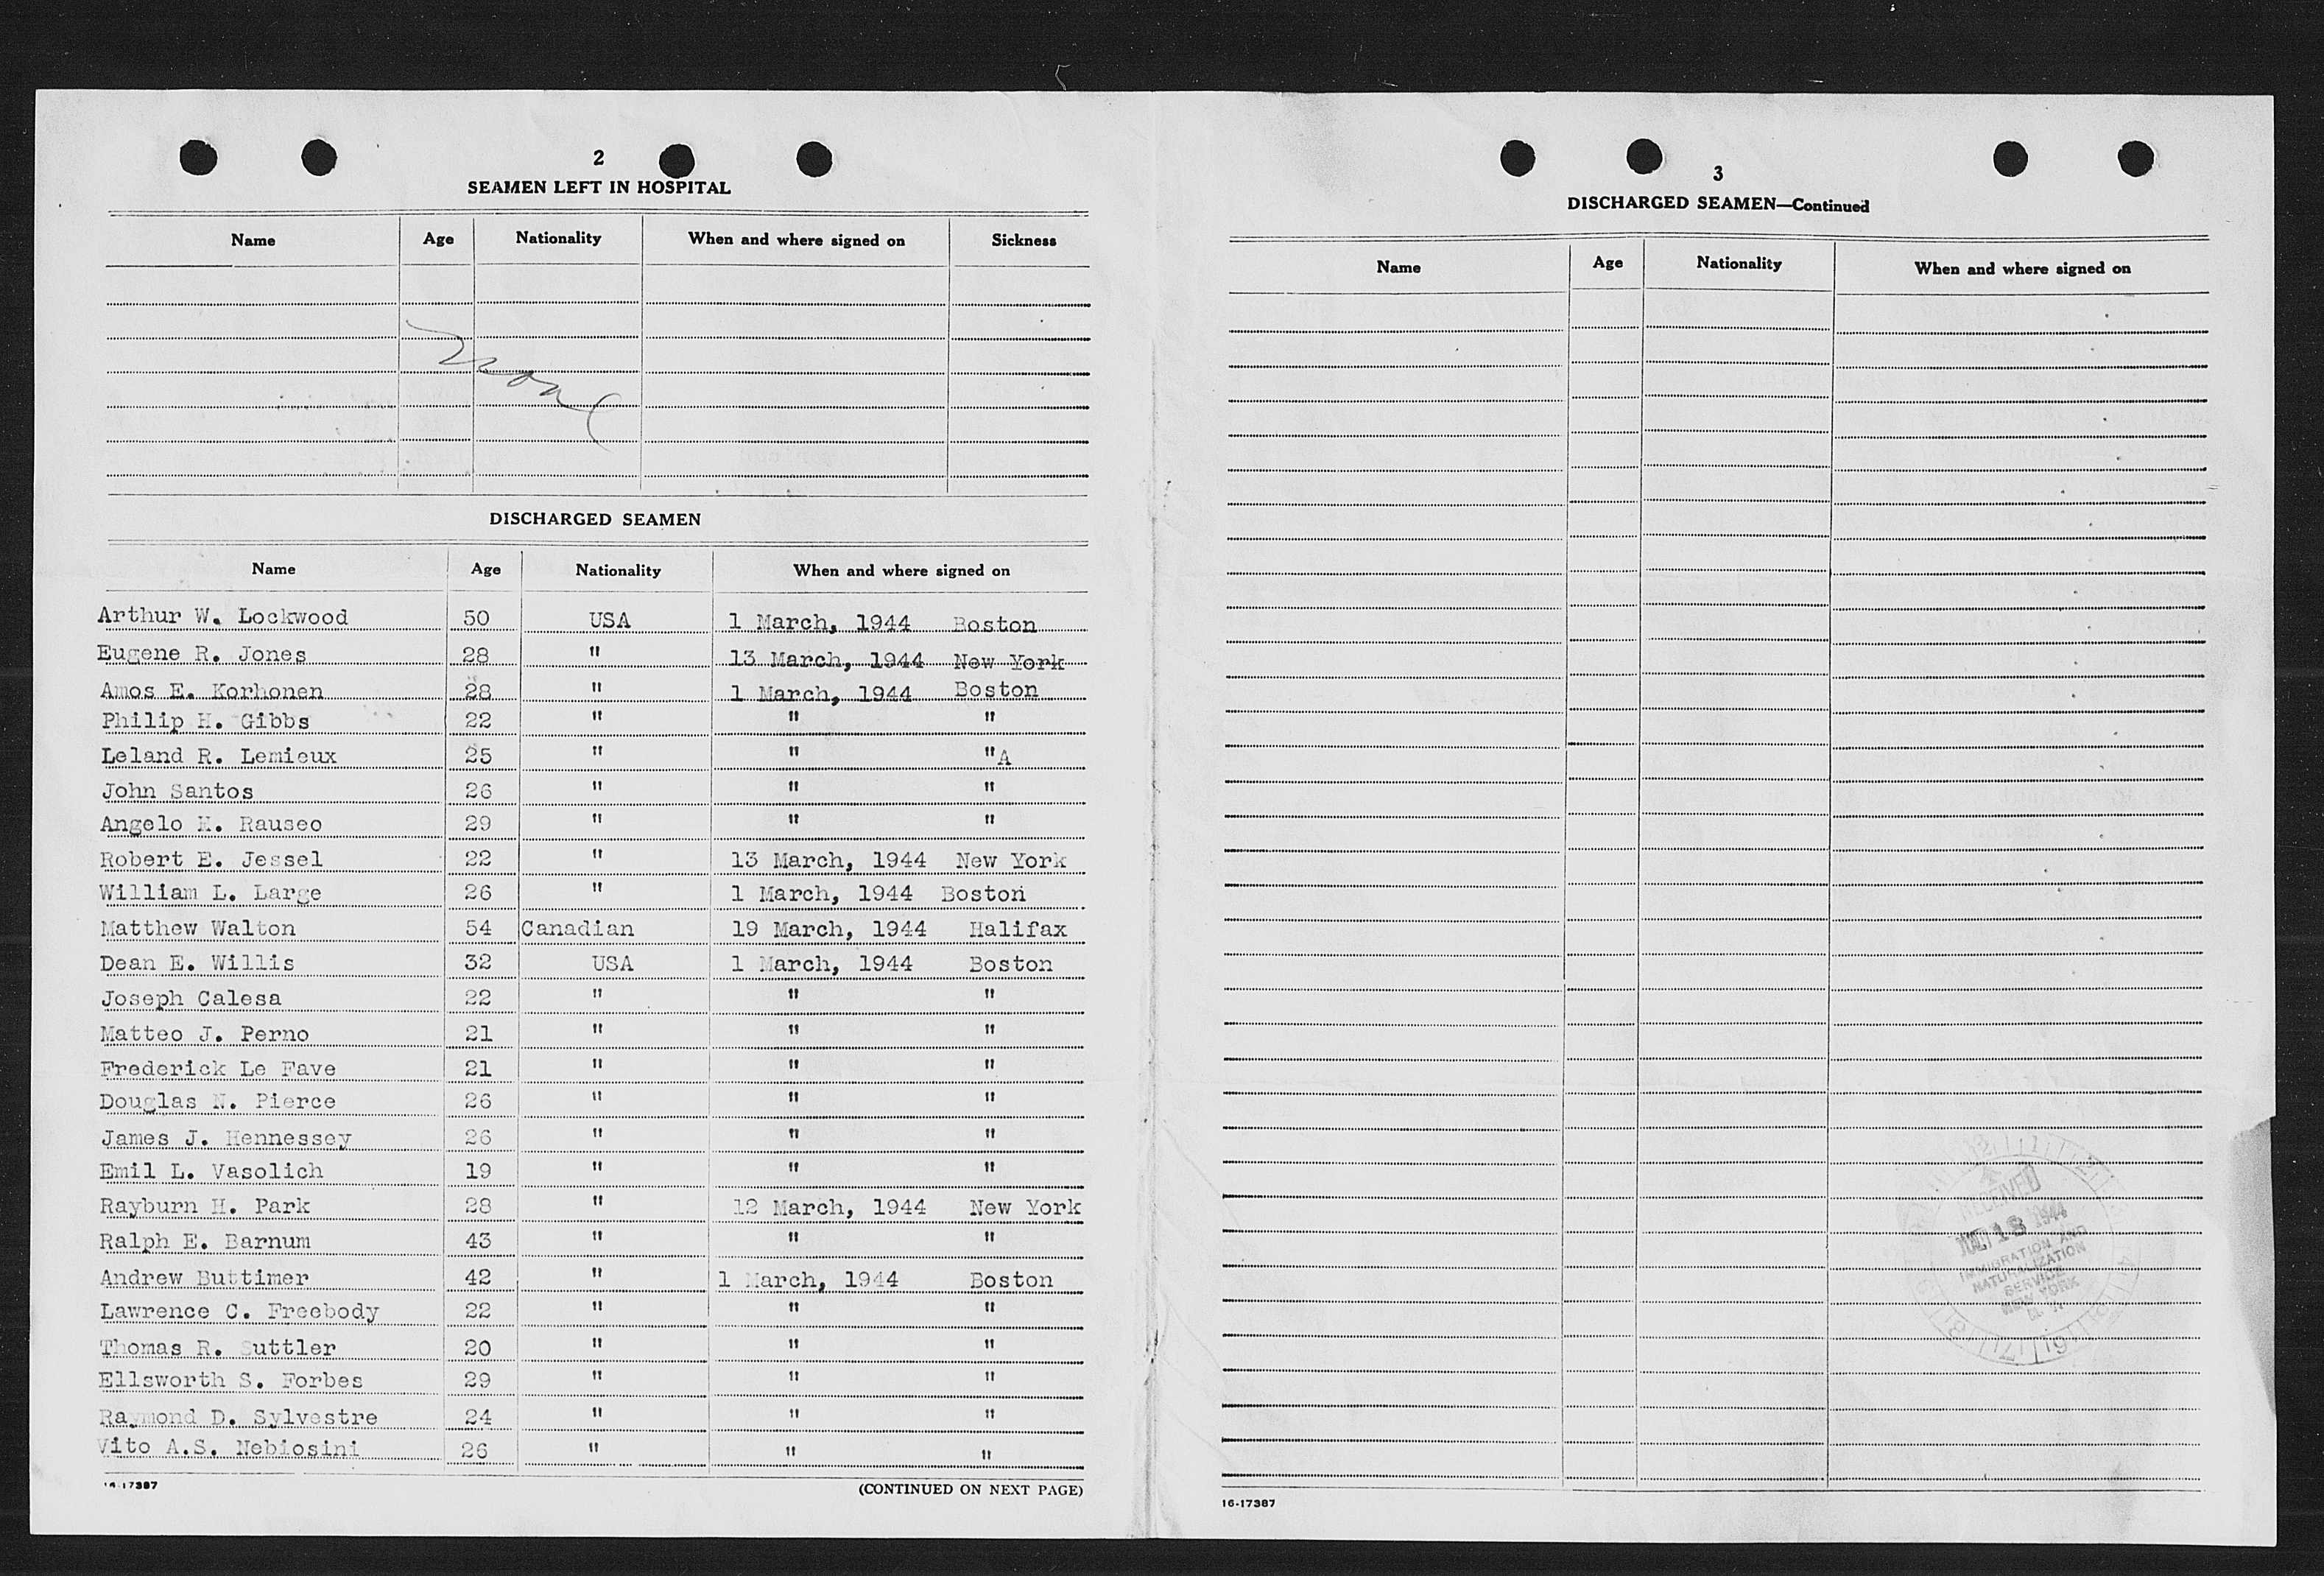 2
SEAMEN LEFT IN HOSPITAL
Name Age Nationality When and where signed on Sickness
None
DISCHARGED SEAMEN
Name Age Nationality When and where signed on
Arthur W. Lockwood 50 USA 1 March, 1944 Boston
Eugene R. Jones 28 " 13 March, 1944 New York
Amos E. Korhonen 28 " 1 March, 1944 Boston
Philip H. Gibbs 22 " " "
Leland R. Lemieux 25 " " "A
John Santos 26 " " "
Angelo M. Rauseo 29 " " "
Robert E. Jessel 22 " 13 March, 1944 New York
William L. Large 26 " 1 March, 1944 Boston
Matthew Walton 54 Canadian 19 March, 1944 Halifax
Dean E. Willis 32 USA 1 March, 1944 Boston
Joseph Calesa 22 " " "
Matteo J. Perno 21 " " "
Frederick Le Fave 21 " " "
Douglas N. Pierce 26 " " "
James J. Hennessey 26 " " "
Emil L. Vasolich 19 " " "
Rayburn H. Park 28 " 12 March, 1944 New York
Ralph E. Barnum 43 " " "
Andrew Buttimer 42 " 1 March, 1944 Boston
Lawrence C. Freebody 22 " " "
Thomas R. Suttler 20 " " "
Ellsworth S. Forbes 29 " " "
Raymond D. Sylvestre 24 " " "
Vito A.S. Nebiosini 26 " " "
16-17387
(CONTINUED ON NEXT PAGE)
3
DISCHARGED SEAMEN—Continued
Name Age Nationality When and where signed on
RECEIVED
18 1944
IMMIGRATION AND
NATURALIZATION
SERVICE
NEW YORK
16-17387